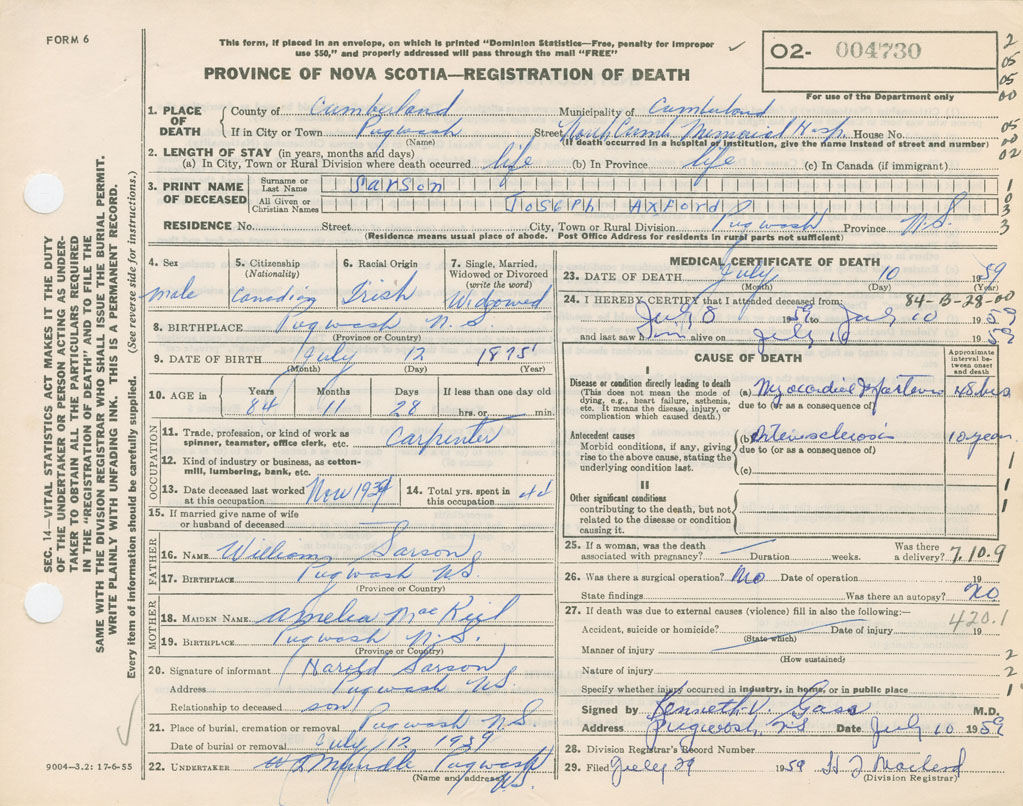 FORM 6
This form, if placed in an envelope, on which is printed "Dominion Statistics—Free, penalty for improper
use $50," and properly addressed will pass through the mail "FREE"
PROVINCE OF NOVA SCOTIA—REGISTRATION OF DEATH
02- 004730
For use of the Department only
2
05
05
00
05
00
02
1
0
3
3
SEC. 14—VITAL STATISTICS ACT MAKES IT THE DUTY
OF THE UNDERTAKER OR PERSON ACTING AS UNDER-
TAKER TO OBTAIN ALL THE PARTICULARS REQUIRED
IN THE "REGISTRATION OF DEATH" AND TO FILE THE
SAME WITH THE DIVISION REGISTRAR WHO SHALL ISSUE THE BURIAL PERMIT.
WRITE PLAINLY WITH UNFADING INK. THIS IS A PERMANENT RECORD.
Every item of information should be carefully supplied. (See reverse side for instructions.)
1. PLACE OF DEATH
County of Cumberland Municipality of Cumberland
If in City or Town Pugwash Street North Cumb Memorial Hosp. House No.
(Name) (If death occurred in a hospital or institution, give the name instead of street and number)
2. LENGTH OF STAY (in years, months and days)
(a) In City, Town or Rural Division where death occurred life (b) In Province life (c) In Canada (if immigrant)
3. PRINT NAME OF DECEASED
Surname or Last Name Sarson
All Given or Christian Names JOSEPH AXFORD
RESIDENCE No. Street City, Town or Rural Division Pugwash Province N.S.
(Residence means usual place of abode. Post Office Address for residents in rural parts not sufficient)
4. Sex 5. Citizenship (Nationality) 6. Racial Origin 7. Single, Married, Widowed or Divorced (write the word)
male Canadian Irish Widowed
8. BIRTHPLACE Pugwash N.S.
(Province or Country)
9. DATE OF BIRTH July 12 1875
(Month) (Day) (Year)
10. AGE in Years Months Days If less than one day old
84 11 28 hrs. or min.
OCCUPATION
11. Trade, profession, or kind of work as
spinner, teamster, office clerk, etc. Carpenter
12. Kind of industry or business, as cotten-
mill, lumbering, bank, etc.
13. Date deceased last worked
at this occupation Nov 1939
14. Total yrs. spent in
this occupation
15. If married give name of wife
or husband of deceased
FATHER
16. NAME William Sarson
17. BIRTHPLACE Pugwash N.S.
(Province or Country)
MOTHER
18. MAIDEN NAME Amelia Mac
19. BIRTHPLACE Pugwash N.S.
(Province or Country)
20. Signature of informant Harold Sarson
Address Pugwash N.S.
Relationship to deceased son
21. Place of burial, cremation or removal Pugwash N.S.
Date of burial or removal July 12 1959
22. UNDERTAKER Pugwash N.S.
(Name and address)
9004—3.2: 17-6-55
MEDICAL CERTIFICATE OF DEATH
23. DATE OF DEATH July 10 1959
(Month) (Day)
24. I HEREBY CERTIFY that I attended deceased from: 84-B-28-00
July 8 1959 to July 10 1959
and last saw him alive on July 10 1959
CAUSE OF DEATH
Approximate interval between onset and death
I
Disease or condition directly leading to death
(This does not mean the mode of
dying, e.g., heart failure, asthenia,
etc. It means the disease, injury, or
complication which caused death.)
(a) Myocardial Infarction 48 hrs
due to (or as a consequence of)
Antecedent causes
Morbid conditions, if any, giving
rise to the above cause, stating the
underlying condition last.
(b) Arteriosclerosis 10 years
due to (or as a consequence of)
(c)
II
Other significant conditions
contributing to the death, but not
related to the disease or condition
causing it.
1
1
1
25. If a woman, was the death
associated with pregnancy? Duration weeks. Was there
a delivery? 7.10.9
26. Was there a surgical operation? No Date of operation 19
State findings Was there an autopsy? No
27. If death was due to external causes (violence) fill in also the following:— 420.1
Accident, suicide or homicide? Date of injury 19
(State which)
Manner of injury 2
(How sustained)
Nature of injury 2
Specify whether injury occurred in industry, in home, or in public place 1
Signed by Kenneth V. Gass M.D.
Address Pugwash, N.S. Date July 10 1959
28. Division Registrar's Record Number
29. Filed July 29 1959 H J Macleod
(Division Registrar)